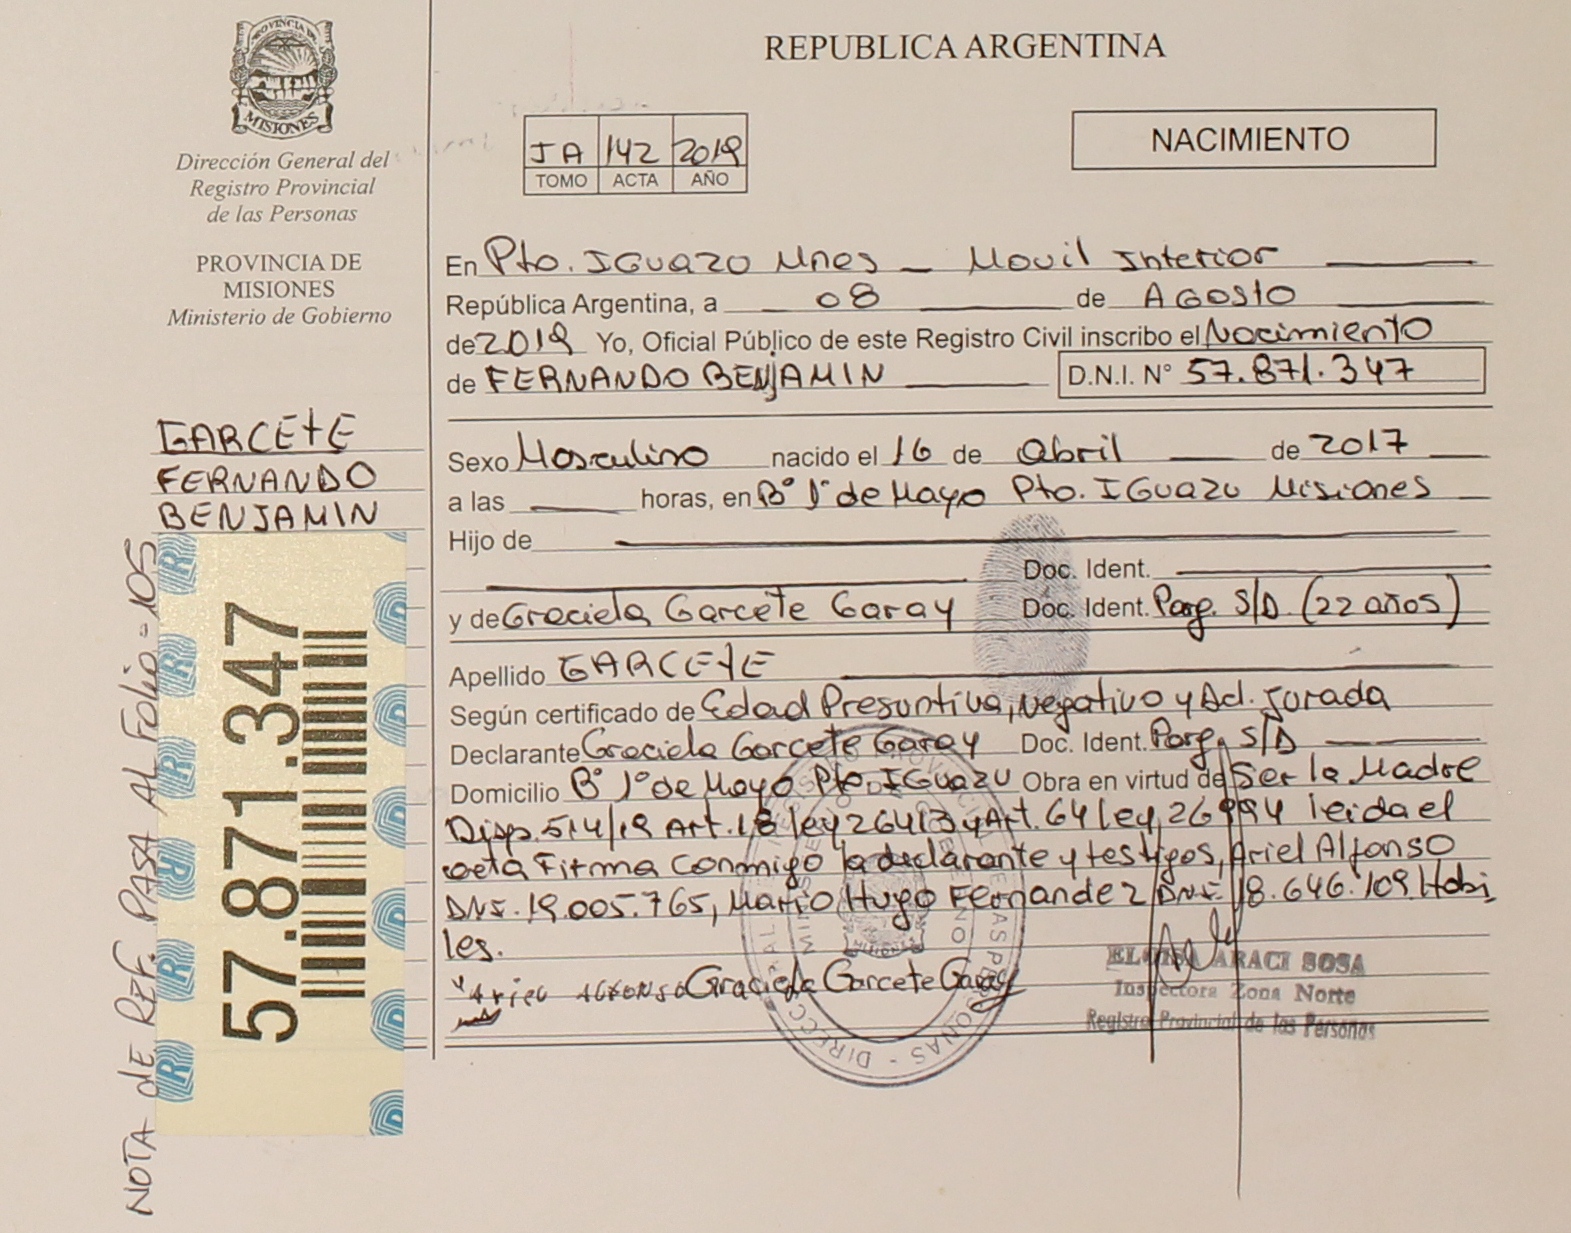 PROVINCIA DE
MISIONES
Dirección General del
Registro Provincial
de las Personas
PROVINCIA DE
MISIONES
Ministerio de Gobierno
GARCETE
FERNANDO
BENJAMIN
57.871.347
NOTA de REF. PASA AL Folio = 105
REPUBLICA ARGENTINA
JA 142 2019
TOMO ACTA AÑO
NACIMIENTO
En Pto. IGUAZO Mnes _ Movil Interior
República Argentina, a 08 de AGOSTO
de 2019 Yo, Oficial Público de este Registro Civil inscribo el Nacimiento
de FERNANDO BENJAMIN D.N.I. N° 57.871.347
Sexo Masculino nacido el 16 de Abril de 2017
a las horas, en B° 1° de Mayo Pto. IGuazu Misiones
Hijo de
Doc. Ident.
y de Graciela Garcete Garay Doc. Ident. Parg. S/D (22 años)
Apellido GARCETE
Según certificado de Edad Presuntiva, negativo y Ad. Jurada
Declarante Graciela Garcete Garay Doc. Ident. Parg. S/D
Domicilio B° 1° de Mayo Pto. IGuazu Obra en virtud de Ser la Madre
Disp. 514/19 Art. 18 ley 26413 y Art. 64 ley 26994 leida el
acta Firma conmigo la declarante y testigos, Ariel Alfonso
DNI. 19.005.765, Mario Hugo Fernandez DNI 18.646.109. Habi
les.
Ariel ALFONSO Graciela Garcete Garay
ELOISA ARACI SOSA
Inspectora Zona Norte
Registro Provincial de las Personas